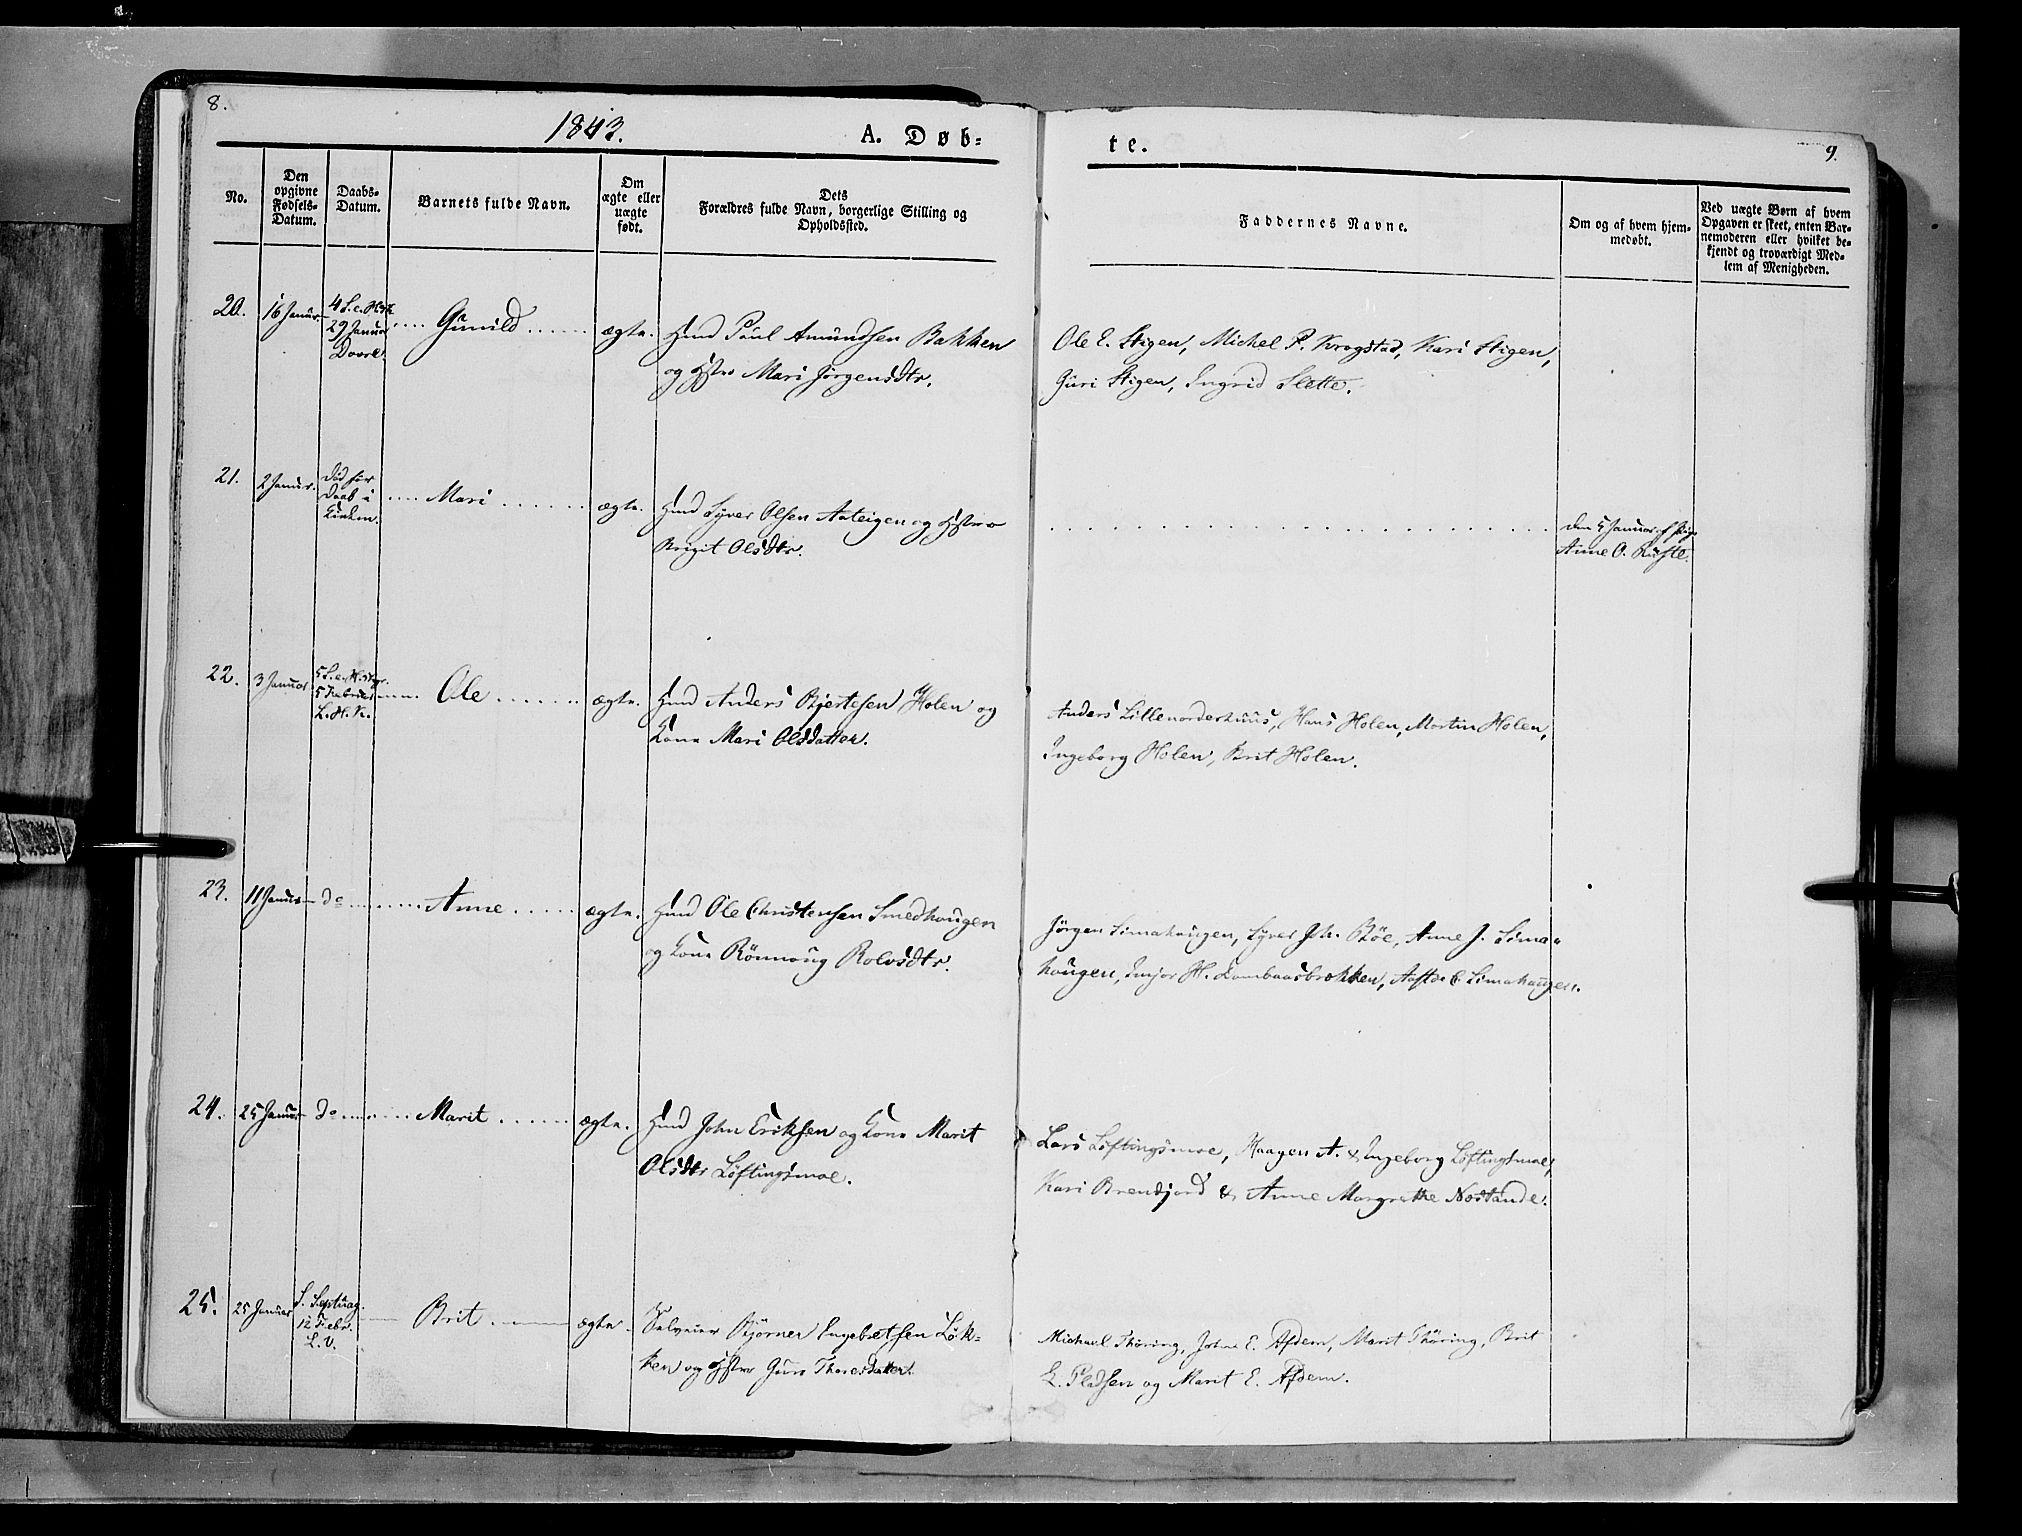 8.
1843.
A. Døb-
te.
9.
No.
Den
opgivne
Fødsels-
Datum.
Daabs-
Datum.
Barnets fulde Navn.
Om
ægte eller
uægte
født.
Dets
Forældres fulde Navn, borgerlige Stilling og
Opholdssted.
Faddernes Navne.
Om og af hvem hjem-
medøbt.
Ved uægte Børn af hvem
Opgaven er skeet, enten Bar-
nemoderen eller hvilket be-
kjendt og troværdigt Med-
lem af Menigheden.
20.
16 Januar.
4 S. e. H3K
29 Januar
Dovre.
Gunild
ægte.
Hmd Paul Amundsen Bakken
og Hstr Mari Jørgensdtr.
Ole E. Stigen, Michel P. Krogstad, Kari Stigen,
Guri Stigen, Ingrid Slette.
21.
2 Januar.
Död før
Daab i
Kirken.
Mari
ægte.
Hmd Syver Olsen Aateigen og Hstro
Brigit Olsdtr.
den 5 Januar af Pige
Anne O.
22.
3 Januar
5 S. e. H.3K.
5 Februar
L. H. K.
Ole
ægte.
Hmd Anders Bjertesen Holen og
Kone Mari Olsdatter.
Anders Lillenorderhuus, Hans Holen, Martin Holen,
Ingeborg Holen, Brit Holen.
23.
11 Januar
do
Anne
ægte.
Hmd Ole Christensen Smedhaugen
og Kone Rönnoug Rolvsdtr.
Jörgen Simahaugen, Syver Joh. Böe, Anne J. Sima-
haugen, H. Lombaasbrækken, C. Simahaugen.
24.
25 Januar
do
Marit
ægte.
Hmd John Eriksen og Kone Marit
Olsdtr Löftingsmoe.
Lars Löftingsmoe, Haagen A. & Ingeborg Löftingsmoe,
Kari Brendjord & Anne Margrethe Nostande.
25.
25 Januar
S. Septuag.
12 Febr.
L. V.
Brit
ægte.
Selveier Björner Ingebretsen Løk-
ken og Hstro Guro Thoresdatter.
Michael Thöring, John E. Afdem, Marit Thöring, Brit
L. Pladsen og Marit E. Afdem.